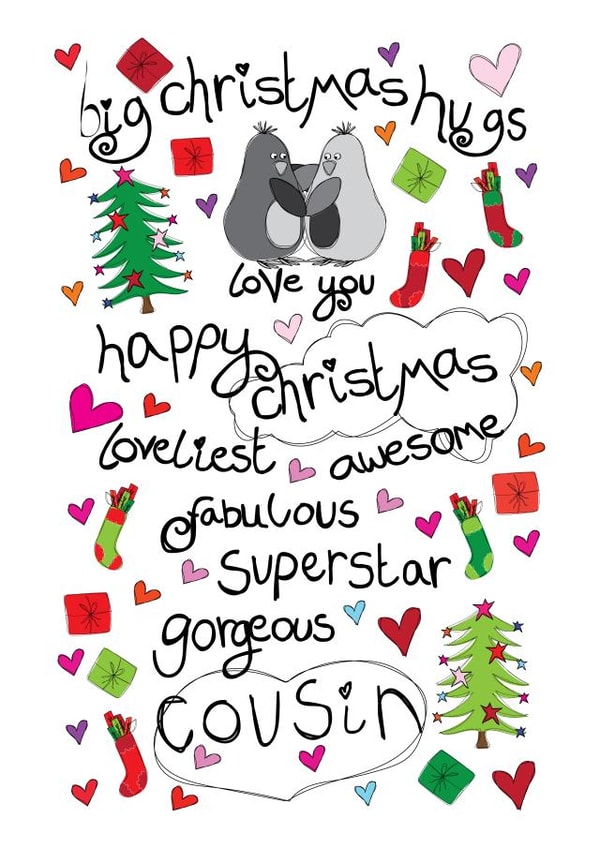 big christmas hugs
love you
happy christmas
loveliest awesome
fabulous
superstar
gorgeous
cousin